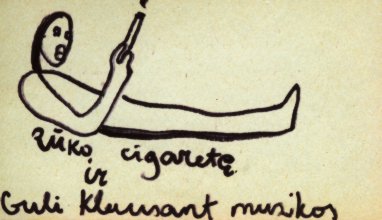 rūko cigaretę
ir
Guli klausant muzikos